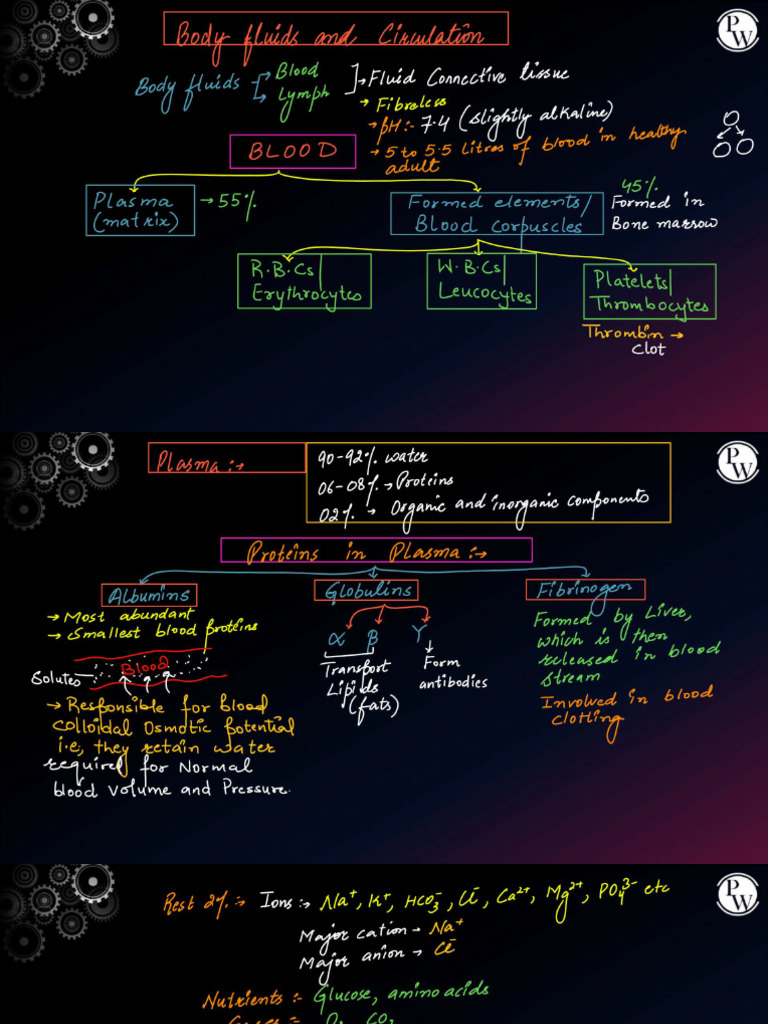 Body fluids and Circulation
P
W
Body fluids → Blood
→ Lymph
→ Fluid Connective tissue
→ Fibreless
→ pH:- 7.4 (slightly alkaline)
→ 5 to 5.5 litres of blood in healthy
adult
BLOOD
Plasma
(matrix)
→ 55%
Formed elements/
Blood corpuscles
45%
Formed in
Bone marrow
R.B.Cs/
Erythrocytes
W.B.Cs/
Leucocytes
Platelets/
Thrombocytes
Thrombin →
Clot
Plasma :→
90-92% water
06-08% → Proteins
02% → Organic and inorganic components
P
W
Proteins in Plasma:→
Albumins
→ Most abundant
→ Smallest blood proteins
Blood
Solutes
→ Responsible for blood
colloidal Osmotic potential
i.e, they retain water
required for Normal
blood volume and Pressure.
Globulins
α β γ
Transport
Lipids
(fats)
Form
antibodies
Fibrinogen
Formed by Liver,
which is then
released in blood
stream
Involved in blood
clotting
Rest 2% :→ Ions :→ Na⁺, K⁺, HCO₃⁻, Cl⁻, Ca²⁺, Mg²⁺, PO₄³⁻ etc
P
W
Major cation → Na⁺
Major anion → Cl⁻
Nutrients :- Glucose, amino acids
Gases :- O₂, CO₂